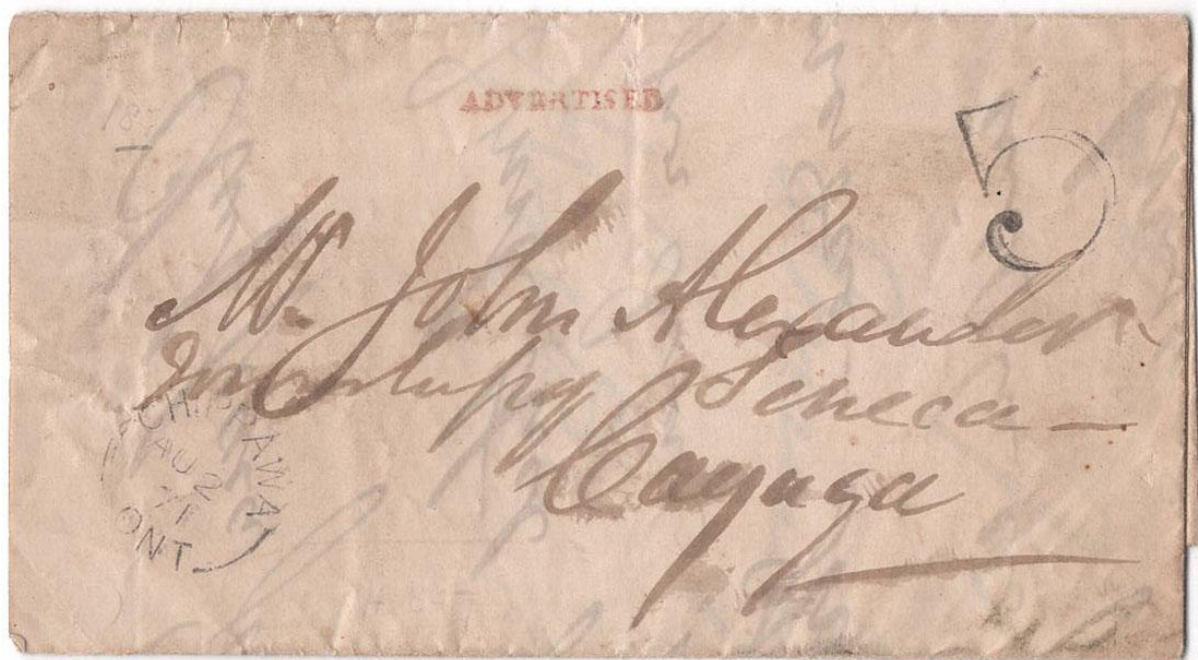 ADVERTISED
5
Mr. John Alexander
Township of Seneca
Cayuga
CHIPPAWA
AU 2
71
ONT